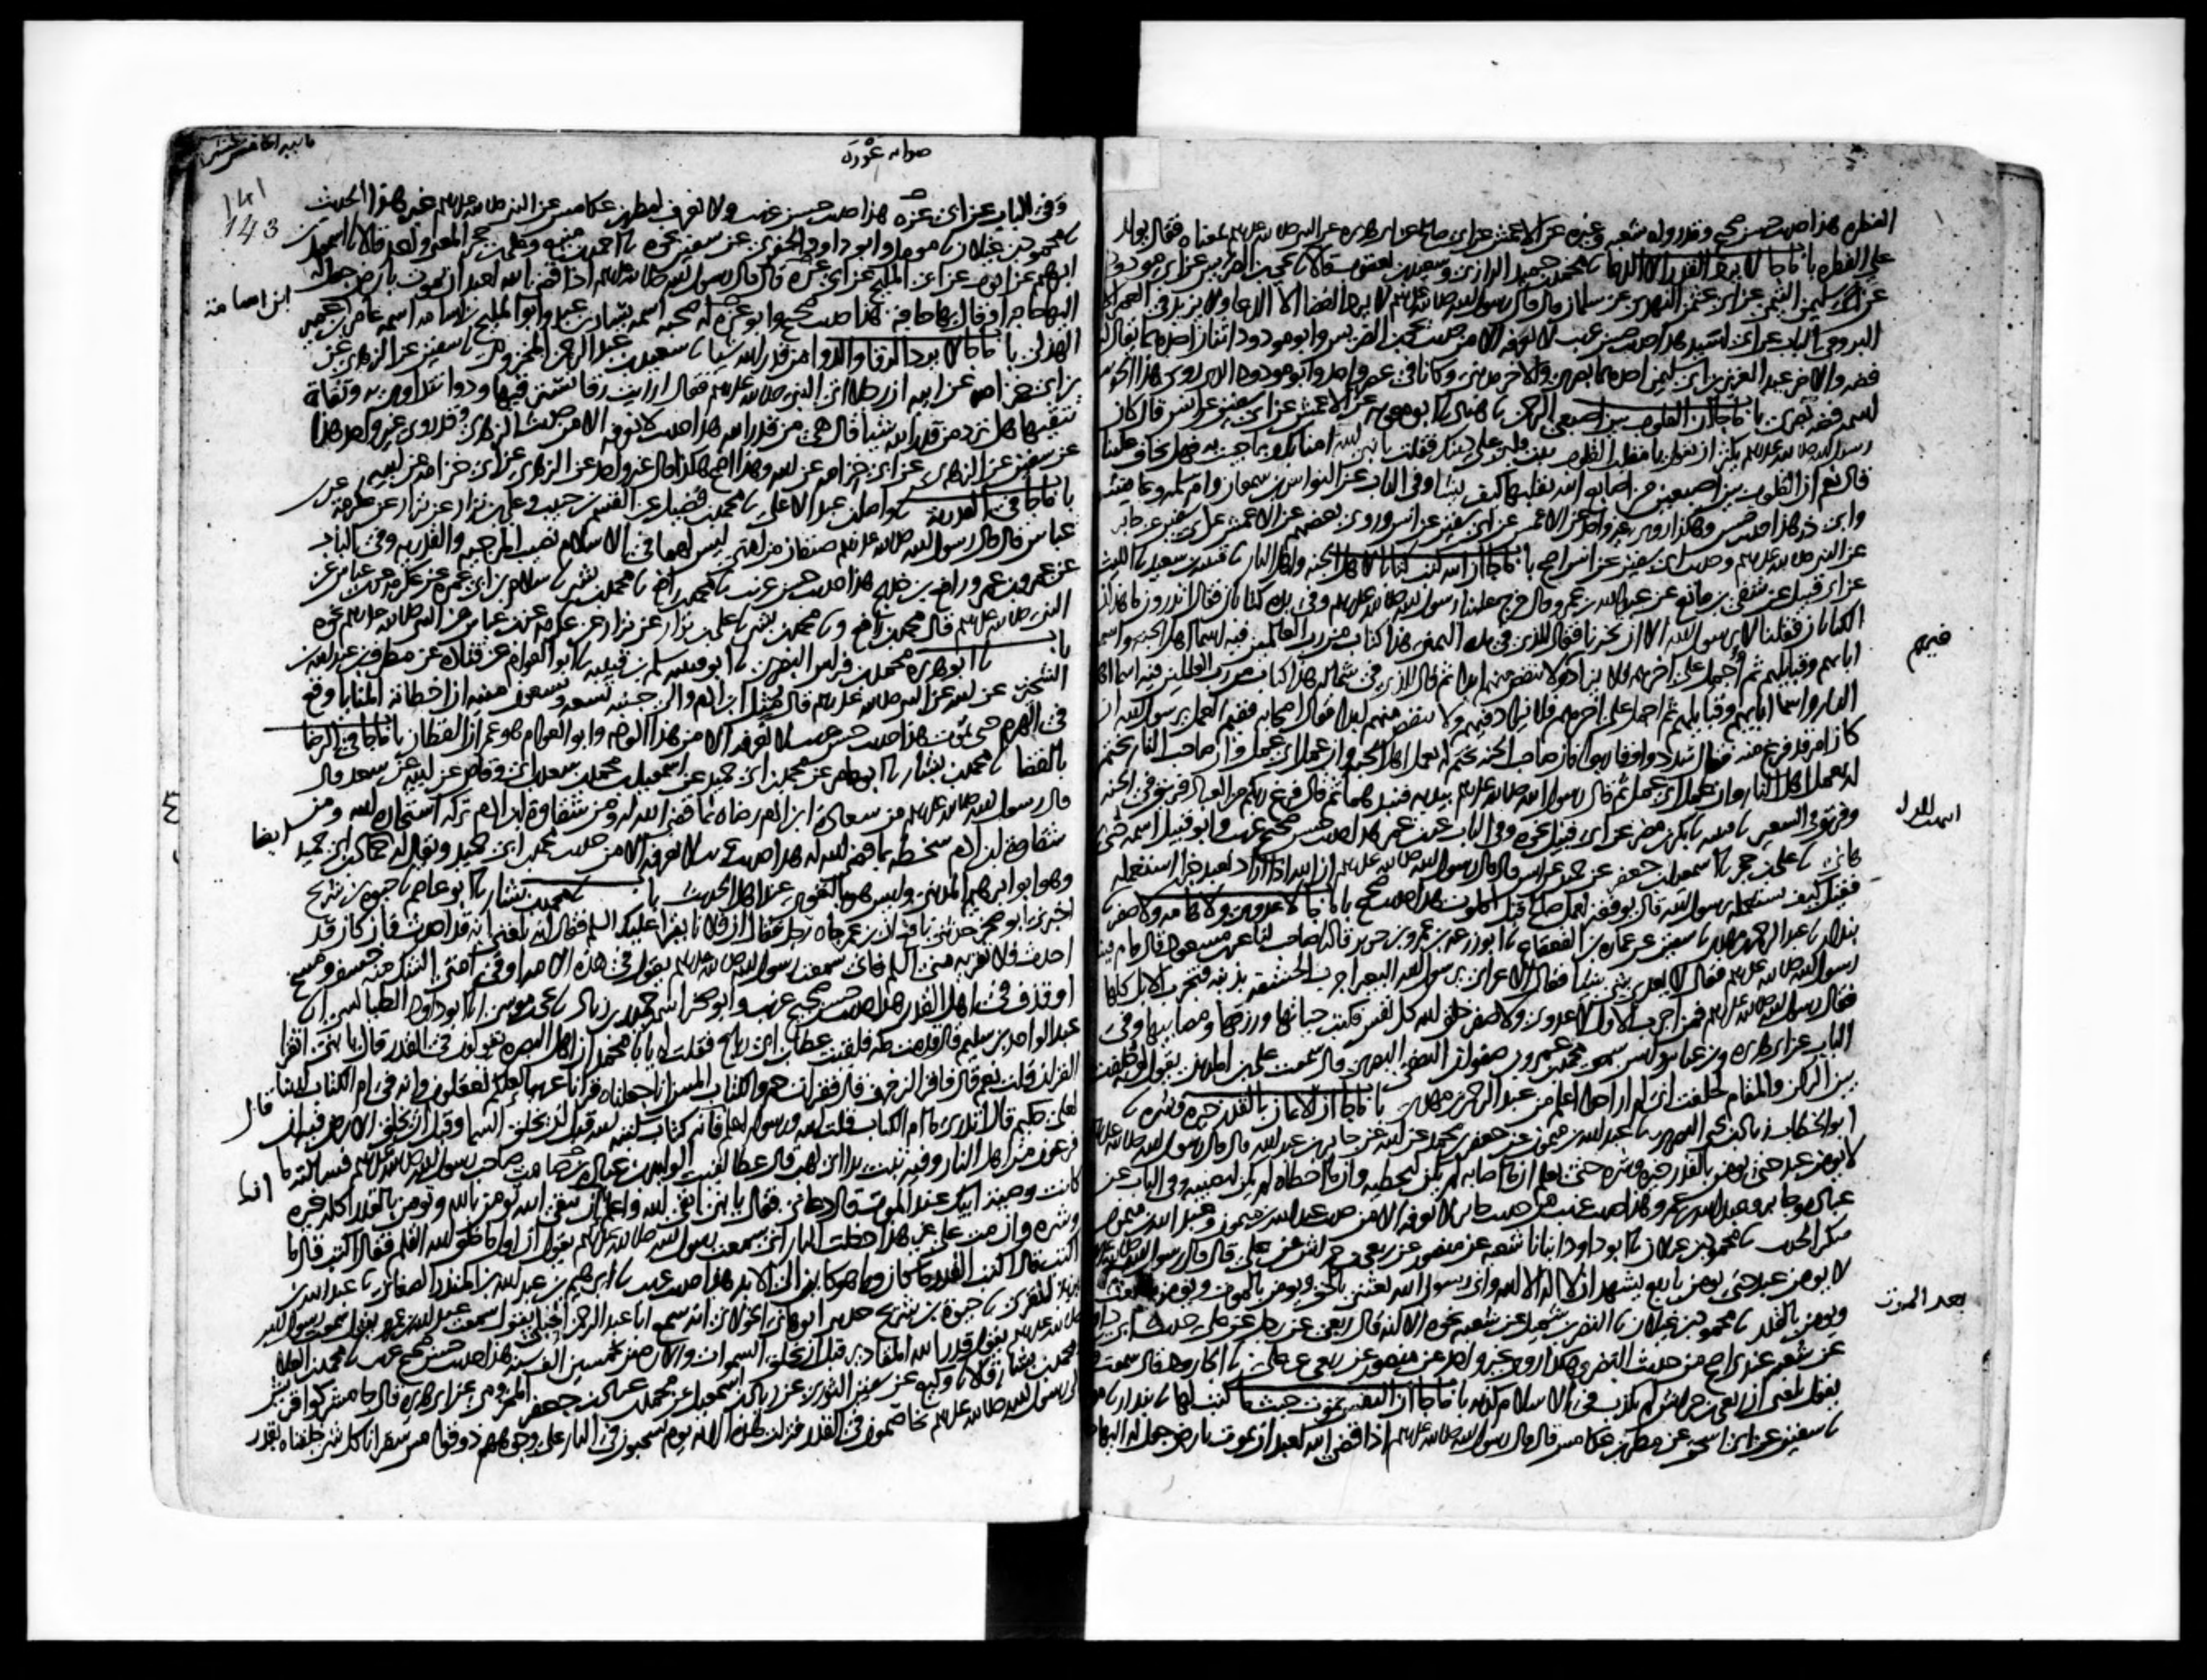 الفطره هذا حديث حسن صحيح وقد رواه شعبه وغيره عن الاعمش عن ابي صالح عن ابي هريره عن النبي صلى الله عليه وسلم بمعناه فقال يولد
على الفطره باب ما جا لا يرد القدر الا الدعا محمد بن حميد الرازي وسعيد بن يعقوب قالا يحيى بن الضريس عن ابي مودود
عن سليمن التيمي عن ابي عثمن النهدي عن سلمان قال قال رسول الله صلى الله عليه وسلم لا يرد القضا الا الدعا ولا يزيد في العمر الا
البر وفي الباب عن ابي اسيد هذا حديث حسن غريب لا نعرفه الا من حديث يحيى بن الضريس وابو مودود اثنان احدهما يقال له
فضه والاخر عبد العزيز بن ابي سليمن احدهما بصري والاخر مديني وكانا في عصر واحد وابو مودود الذي روى هذا الحديث
اسمه فضه بصري باب ما جا ان القلوب بين اصبعي الرحمن هناد ابو معويه عن الاعمش عن ابي سفين عن انس قال كان
رسول الله صلى الله عليه وسلم يكثر ان يقول يا مقلب القلوب ثبت قلبي على دينك فقلت يا نبي الله امنا بك وبما جيت به فهل تخاف علينا
قال نعم ان القلوب بين اصبعين من اصابع الله يقلبها كيف يشا وفي الباب عن النواس بن سمعان وام سلمه وعايشه
وابي ذر هذا حديث حسن وهكذا روى غير واحد عن الاعمش عن ابي سفين عن انس وروى بعضهم عن الاعمش عن ابي سفين عن جابر
عن النبي صلى الله عليه وسلم وحديث ابي سفين عن انس اصح باب ما جا ان الله كتب كتابا لاهل الجنه واهل النار قتيبه بن سعيد الليث
عن ابي قبيل عن شفي بن ماتع عن عبد الله بن عمرو قال خرج علينا رسول الله صلى الله عليه وسلم وفي يده كتابان فقال اتدرون ما هذان
الكتابان فقلنا لا يرسول الله الا ان تخبرنا فقال للذي في يده اليمنى هذا كتاب من رب العالمين فيه اسما اهل الجنه واسما
اباهم وقبايلهم ثم اجمل على اخرهم فلا يزاد ولا ينقص منهم ابدا ثم قال للذي في شماله هذا كتاب من رب العلمين فيه اسما اهل
النار واسما ابايهم وقبايلهم ثم اجمل على اخرهم فلا يزاد فيهم ولا ينقص منهم ابدا فقال اصحابه ففيم العمل يرسول الله ان
كان امر قد فرغ منه فقال سددوا وقاربوا فان صاحب الجنه يختم له بعمل اهل الجنه وان عمل اي عمل وان صاحب النار يختم
له بعمل اهل النار وان عمل اي عمل ثم قال رسول الله صلى الله عليه وسلم بيديه فنبذهما ثم قال فرغ ربكم من العباد فريق في الجنه
وفريق في السعير قتيبه بكر بن مضر عن ابي قبيل نحوه وفي الباب عن ابن عمر هذا حديث حسن صحيح غريب وابو قبيل اسمه حيي
بن هاني علي بن حجر اسمعيل بن جعفر عن حميد عن انس قال قال رسول الله صلى الله عليه وسلم ان الله اذا اراد بعبد خيرا استعمله
فقيل كيف يستعمله يرسول الله قال يوفقه لعمل صالح قبل الموت هذا حديث صحيح باب ما جا لا عدوى ولا هامه ولا صفر
بندار عبد الرحمن بن مهدي سفين عن عماره بن القعقاع ابو زرعه بن عمرو بن جرير قال صاحب لنا عن ابن مسعود قال قام فينا
رسول الله صلى الله عليه وسلم فقال لا يعدي شي شيا فقال الاعرابي يرسول الله البعير اجرب الحشفه بذنبه فتجرب الابل كلها
فقال رسول الله صلى الله عليه وسلم فمن اجرب الاول لا عدوى ولا صفر خلق الله كل نفس فكتب حياتها ورزقها ومصايبها وفي
الباب عن ابي هريره وابن عباس وانس سمعت محمد بن عمرو بن صفوان الثقفي البصري قال سمعت علي بن المديني يقول لو حلفت
بين الركن والمقام لحلفت اني لم ار احدا اعلم من عبد الرحمن بن مهدي باب ما جا ان الايمان بالقدر خيره وشره
ابو الخطاب زياد بن يحيى البصري عبد الله بن ميمون عن جعفر بن محمد عن ابيه عن جابر بن عبد الله قال قال رسول الله صلى الله عليه وسلم
لا يومن عبد حتى يومن بالقدر خيره وشره حتى يعلم ان ما اصابه لم يكن ليخطيه وان ما اخطاه لم يكن ليصيبه وفي الباب عن
عباده وجابر وعبد الله بن عمرو هذا حديث غريب من حديث جابر لا نعرفه الا من حديث عبد الله بن ميمون وعبد الله بن ميمون
منكر الحديث محمود بن غيلان ابو داود انبانا شعبه عن منصور عن ربعي بن حراش عن علي قال قال رسول الله صلى الله عليه وسلم
لا يومن عبد حتى يومن باربع يشهد ان لا اله الا الله واني رسول الله بعثني بالحق ويومن بالموت ويومن بالبعث
ويومن بالقدر محمود بن غيلان النضر بن شميل عن شعبه نحوه الا انه قال ربعي عن رجل عن علي حديث ابي داود
عن شعبه عندي اصح من حديث النضر وهكذا روى غير واحد عن منصور عن ربعي عن علي الجارود قال سمعت
يقول بلغني ان ربعي بن حراش لم يكذب في الاسلام كذبه باب ما جا ان النفس تموت حيث ما كتب لها بندار
سفين عن ابي اسحق عن مطر بن عكامس قال قال رسول الله صلى الله عليه وسلم اذا قضى الله لعبد ان يموت بارض جعل له اليها
فيهم
بعد الموت
صوابه
141
143
وفي الباب عن ابي عزه هذا حديث حسن غريب ولا نعرف لمطر بن عكامس عن النبي صلى الله عليه وسلم غير هذا الحديث
محمود بن غيلان مومل وابو داود الحفري عن سفين نحوه احمد بن منيع وعلي بن حجر المعنى واحد قالا اسمعيل بن
ابرهيم عن ايوب عن ابي المليح عن ابي عزه قال قال رسول الله صلى الله عليه وسلم اذا قضى الله لعبد ان يموت بارض جعل له
اليها حاجه او قال بها حاجه هذا حديث صحيح وابو عزه له صحبه اسمه يسار بن عبد وابو المليح بن اسامه اسمه عامر بن عمير
الهذلي باب ما جا لا يرد الرقا والدوا من قدر الله شيا سعيد بن عبد الرحمن المخزومي سفين عن الزهري عن
ابن ابي خزامه عن ابيه ان رجلا اتى النبي صلى الله عليه وسلم فقال ارايت رقا نسترقيها ودوا نتداوى به وتقاة
نتقيها هل ترد من قدر الله شيا قال هي من قدر الله هذا حديث لا نعرفه الا من حديث الزهري وقد روى غير واحد هذا
عن سفين عن الزهري عن ابي خزامه عن ابيه وهذا اصح هكذا قال غير واحد عن الزهري عن ابي خزامه عن ابيه
باب ما جا في القدريه واصل بن عبد الاعلى محمد بن فضيل عن القسم بن حبيب وعلي بن نزار عن نزار عن عكرمه عن ابن
عباس قال قال رسول الله صلى الله عليه وسلم صنفان من امتي ليس لهما في الاسلام نصيب المرجيه والقدريه وفي الباب
عن عمر وابن عمر ورافع بن خديج هذا حديث حسن غريب محمد بن رافع محمد بن بشر سلام بن ابي عمره عن عكرمه عن ابن عباس عن
النبي صلى الله عليه وسلم قال محمد بن رافع و محمد بن بشر علي بن نزار عن نزار عن عكرمه عن ابن عباس عن النبي صلى الله عليه وسلم نحوه
باب ابو هريره محمد بن فراس البصري ابو قتيبه سلم بن قتيبه ابو العوام عن قتاده عن مطرف بن عبد الله بن
الشخير عن ابيه عن النبي صلى الله عليه وسلم قال مثل ابن ادم والى جنبه تسعه وتسعون منيه ان اخطاته المنايا وقع
في الهرم حتى يموت هذا حديث حسن غريب لا نعرفه الا من هذا الوجه وابو العوام هو عمران القطان باب ما جا في الرضا
بالقضا محمد بن بشار ابو عامر عن محمد بن ابي حميد عن اسمعيل بن محمد بن سعد بن ابي وقاص عن ابيه عن سعد قال
قال رسول الله صلى الله عليه وسلم من سعادة ابن ادم رضاه بما قضى الله له ومن شقاوة ابن ادم تركه استخارة الله ومن
شقاوة ابن ادم سخطه بما قضى الله له هذا حديث غريب لا نعرفه الا من حديث محمد بن ابي حميد ويقال له حماد بن ابي حميد
وهو ابو ابرهيم المديني وليس هو بالقوي عند اهل الحديث باب محمد بن بشار ابو عاصم حيوه بن شريح
اخبرني ابو صخر حدثني نافع ان ابن عمر جاه رجل فقال ان فلانا يقرا عليك السلم فقال انه بلغني انه قد احدث فان كان قد
احدث فلا تقريه مني السلم فاني سمعت رسول الله صلى الله عليه وسلم يقول في هذه الامه او في امتي الشك منه خسف ومسخ
او قذف في اهل القدر هذا حديث حسن صحيح غريب وابو صخر اسمه حميد بن زياد يحيى بن موسى ابو داود الطيالسي
عبد الواحد بن سليم قال قدمت مكه فلقيت عطا بن ابي رباح فقلت له يا با محمد ان اهل البصره يقولون في القدر قال يا بني اتقرا
القران قلت نعم قال فاقرا الزخرف قال فقرات حم والكتاب المبين انا جعلناه قرانا عربيا لعلكم تعقلون وانه في ام الكتاب لدينا
لعلي حكيم قال اتدري ما ام الكتاب قلت الله ورسوله اعلم قال فانه كتاب كتبه الله قبل ان يخلق السما وقبل ان يخلق الارض فيه ان
فرعون من اهل النار وفيه تبت يدا ابي لهب قال عطا لقيت الوليد بن عباده بن الصامت صاحب رسول الله صلى الله عليه وسلم فسالته ما
كانت وصية ابيك عند الموت قال دعاني فقال يا بني اتق الله واعلم انك لن تتقي الله حتى تومن بالله وتومن بالقدر كله خيره
وشره وان مت على غير هذا دخلت النار اني سمعت رسول الله صلى الله عليه وسلم يقول ان اول ما خلق الله القلم فقال اكتب قال ما
اكتب قال اكتب القدر ما كان وما هو كاين الى الابد هذا حديث غريب ابرهيم بن عبد الله بن المنذر الصغاني عبد الله بن
يزيد المقري حيوه بن شريح حدثني ابو هاني الخولاني انه سمع ابا عبد الرحمن الحبلي يقول سمعت عبد الله بن عمرو يقول سمعت رسول الله
صلى الله عليه وسلم يقول قدر الله المقادير قبل ان يخلق السموات والارض بخمسين الف سنه هذا حديث حسن صحيح غريب محمد بن العلا
ومحمد بن بشار قالا وكيع عن سفين الثوري عن زياد بن اسمعيل عن محمد بن عباد بن جعفر المخزومي عن ابي هريره قال جا مشركوا قريش
الى رسول الله صلى الله عليه وسلم يخاصمون في القدر فنزلت هذه الايه يوم يسحبون في النار على وجوههم ذوقوا مس سقر انا كل شي خلقناه بقدر
ابن اسامه
ايضا
قال